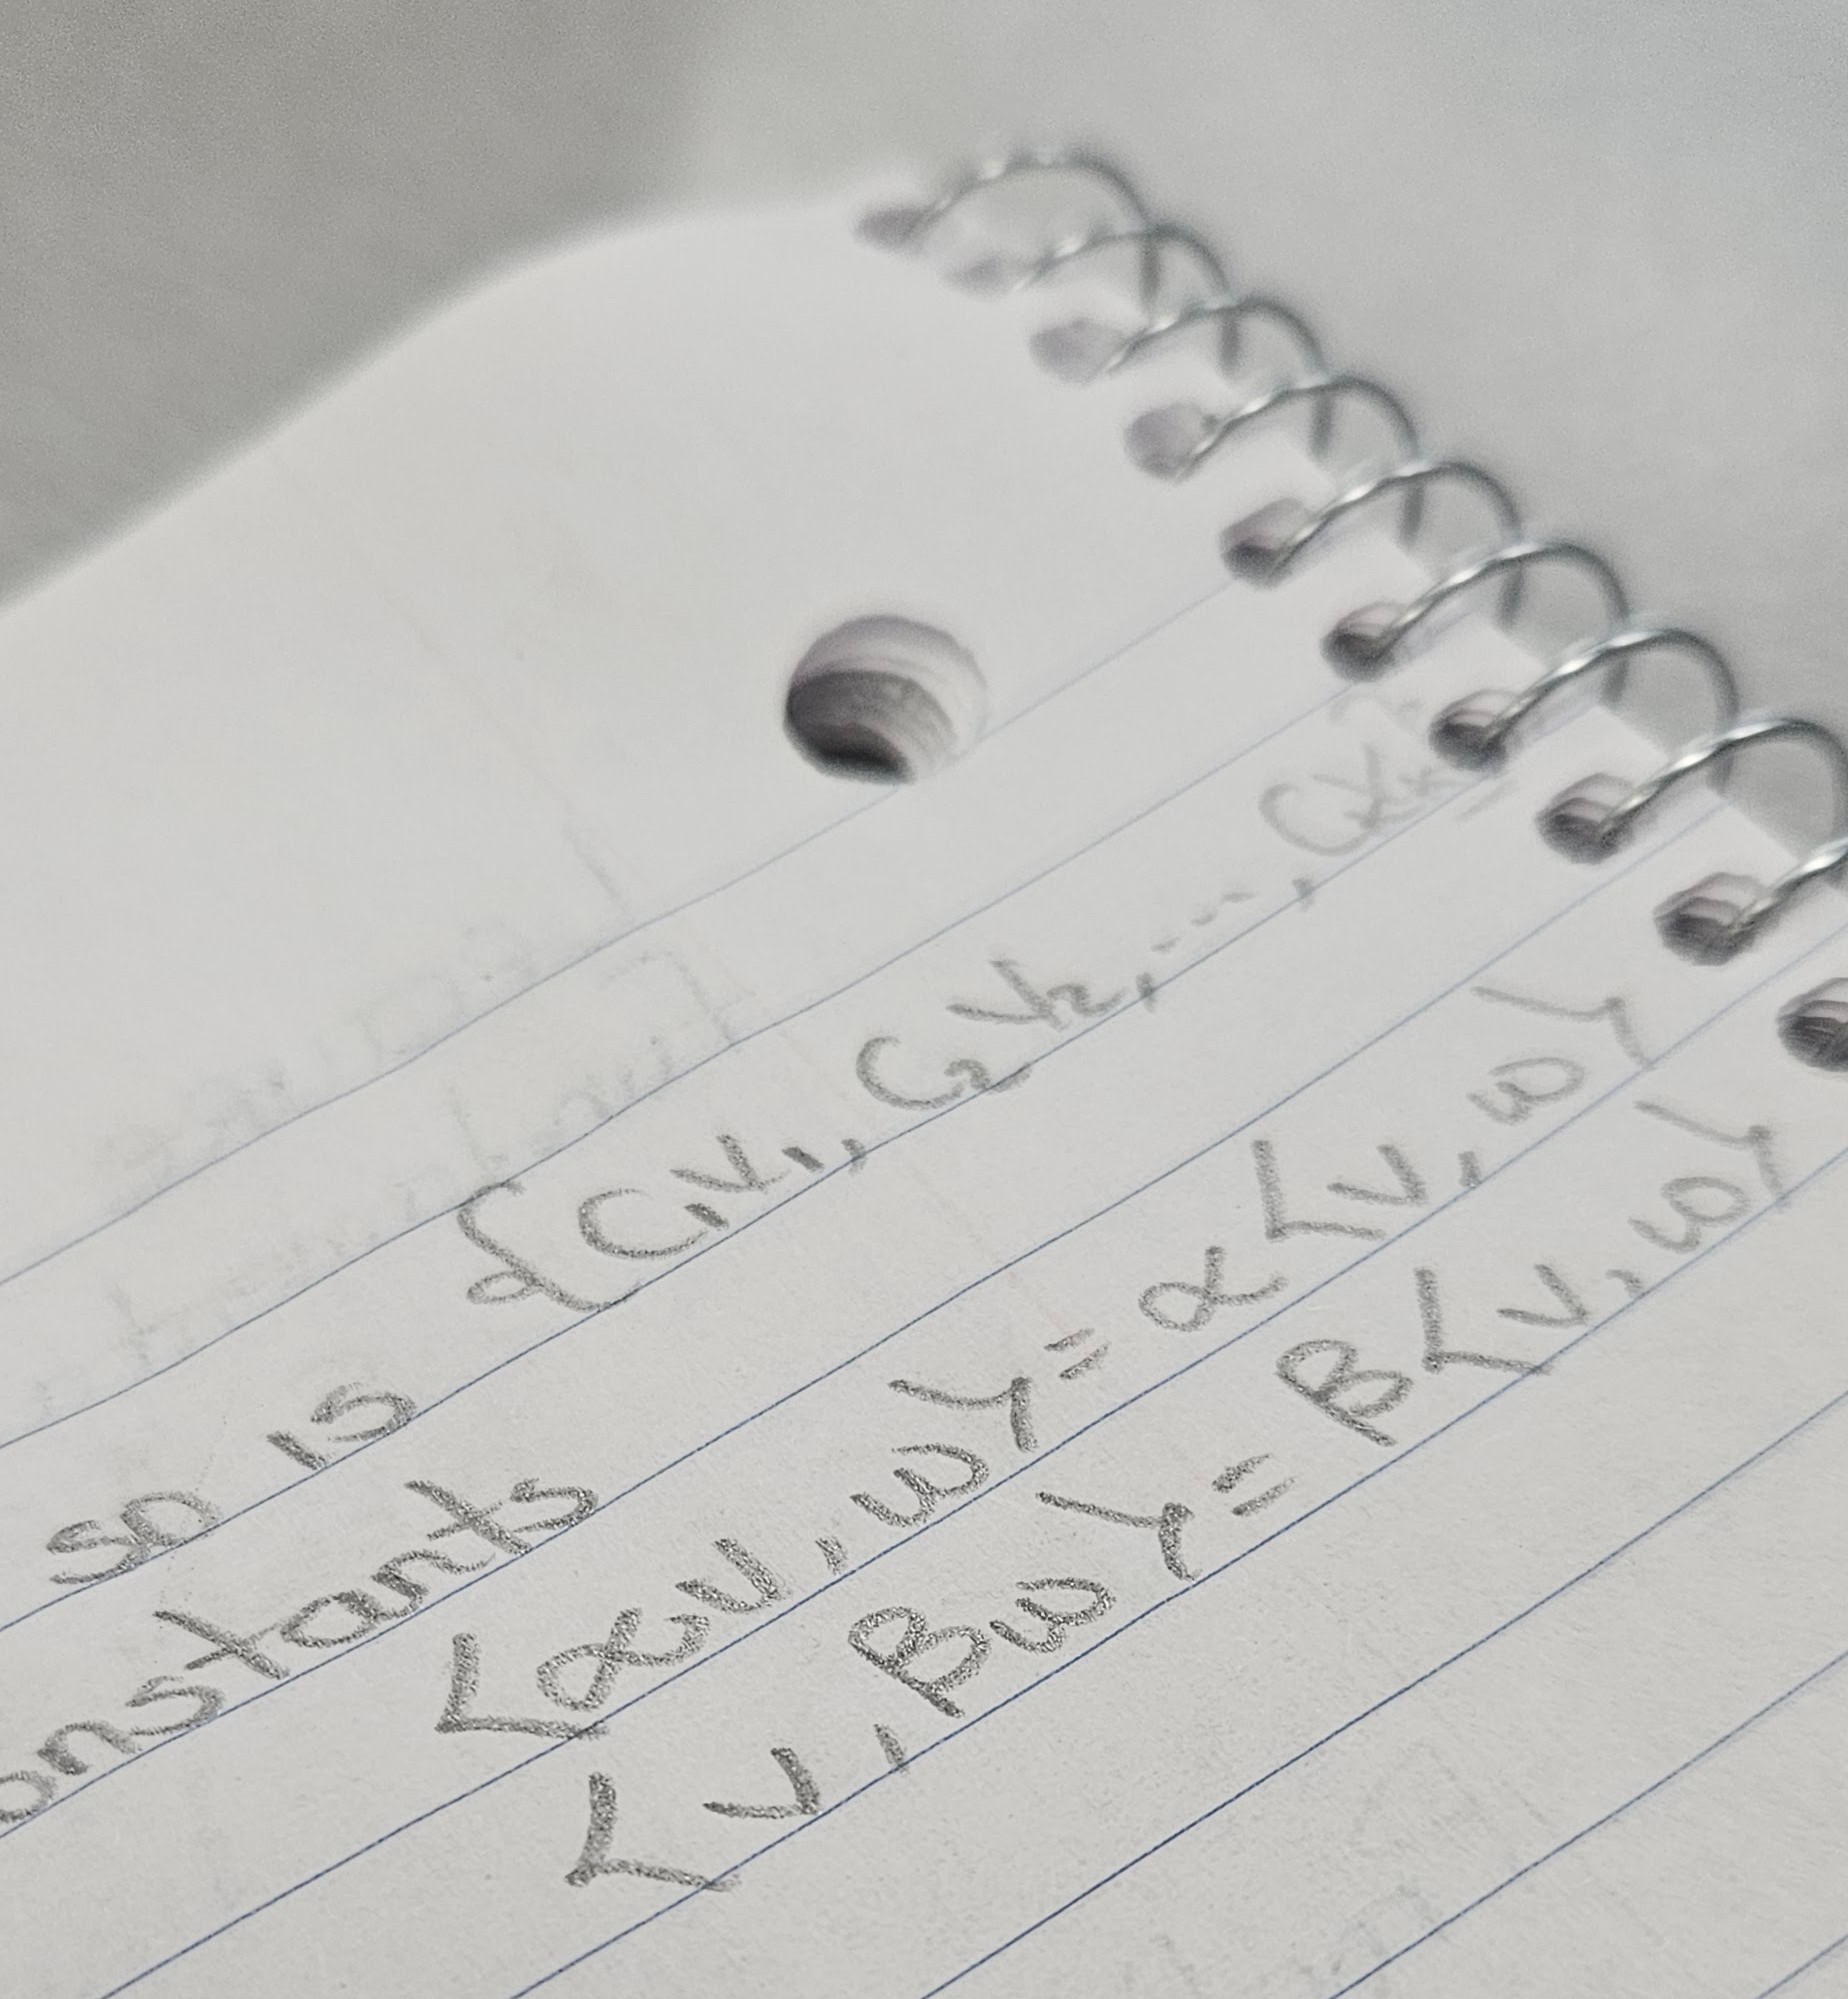 so is {C₁V₁, C₂V₂, ..., CₖVₖ}
onstants
<αv, w> = α<v, w>
<v, βw> = β<v, w>